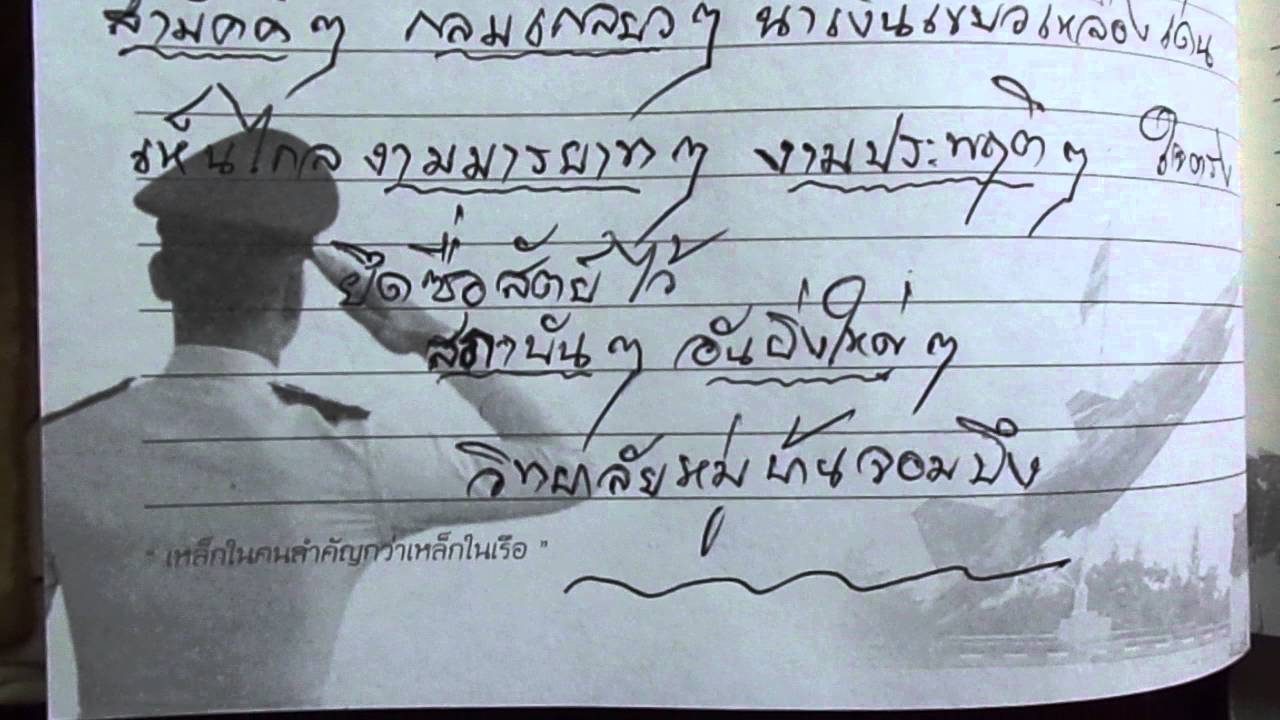 สามัคคีๆ กลมเกลียวๆ น้ำเงินเขียวเหลืองเด่น
เห็นไกล งามมารยาทๆ งามประพฤติๆ ใจตรง
ยึดซื่อสัตย์ไว้
สถาบันๆ อันยิ่งใหญ่ๆ
วิทยาลัยหมู่บ้านจอมบึง
" เหล็กในคนสำคัญกว่าเหล็กในเรือ "